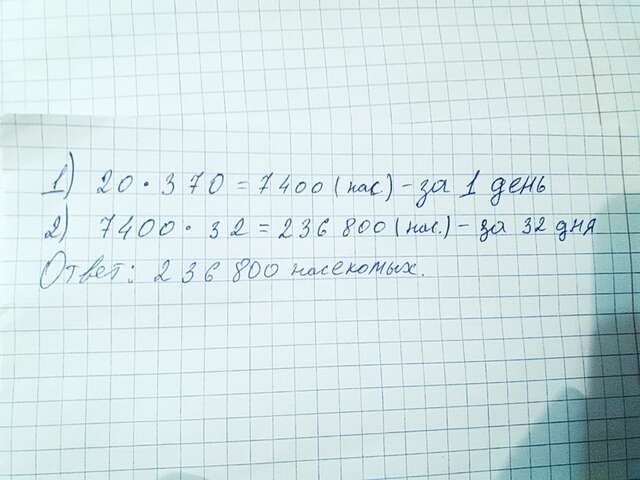 1) 20 · 370 = 7400 (нас) - за 1 день
2) 7400 · 32 = 236 800 (нас.) - за 32 дня
Ответ: 236 800 насекомых.